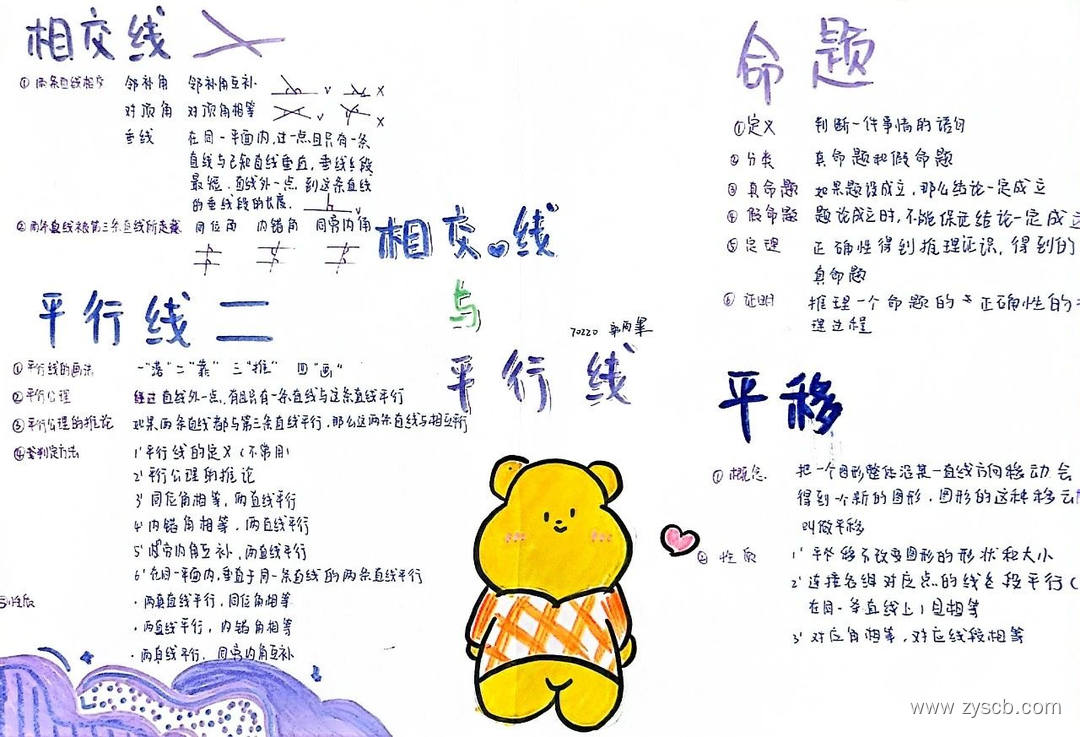 相交线
① 两条直线相交 邻补角 邻补角互补 √ ×
对顶角 对顶角相等 √ ×
垂线 在同一平面内,过一点且只有一条
直线与已知直线垂直,垂线段
最短.直线外一点,到这条直线
的垂线段的长度.
② 两条直线被第三条直线所截 同位角 内错角 同旁内角
平行线
① 平行线的画法 一"落"二"靠" 三"推" 四"画"
② 平行公理 经过直线外一点,有且只有一条直线与这条直线平行
③ 平行公理的推论 如果两条直线都与第三条直线平行,那么这两条直线与相互平行
④ 判定方法 1'平行线的定义(不常用)
2'平行公理的推论
3'同位角相等,两直线平行
4'内错角相等,两直线平行
5'同旁内角互补,两直线平行
6'在同一平面内,垂直于同一条直线的两条直线平行
性质 ·两直线平行,同位角相等
·两直线平行,内错角相等
·两直线平行,同旁内角互补
相交线
与
70220
平行线
命题
① 定义 判断一件事情的语句
② 分类 真命题和假命题
③ 真命题 如果题设成立,那么结论一定成立
④ 假命题 题设成立时,不能保证结论一定成立
⑤ 定理 正确性得到推理证识,得到的
真命题
⑥ 证明 推理一个命题的 正确性的
理过程
平移
① 概念 把一个图形整体沿某一直线方向移动 会
得到一个新的图形.图形的这种移动
叫做平移
② 性质 1' 平移不改变图形的形状和大小
2' 连接各组对应点的线段平行(
在同一条直线上)且相等
3' 对应角相等,对应线段相等
www.zyscb.com